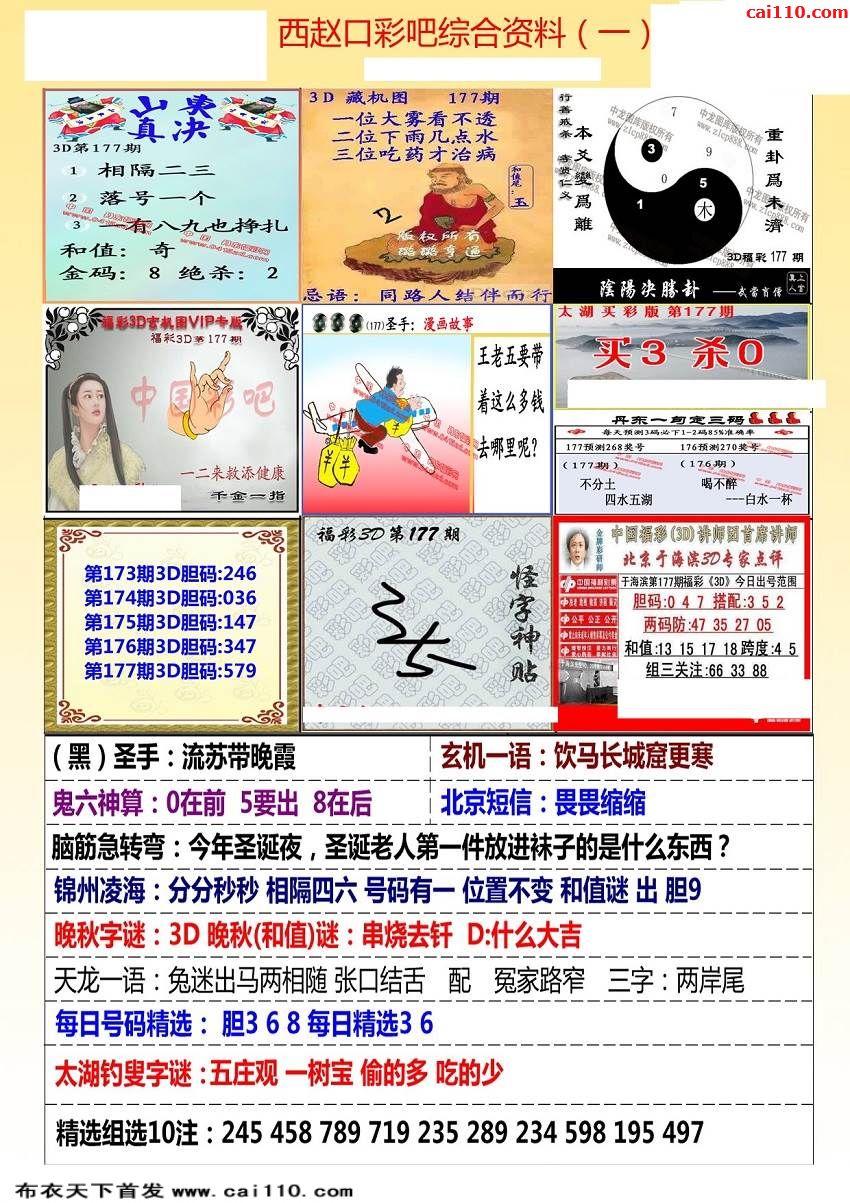 cai110.com
西赵口彩吧综合资料（一）
山東
真决
3D第177期
1 相隔二三
2 落号一个
3 一有八九也挣扎
和值：奇
金码：8 绝杀：2
3D 藏机图 177期
一位大雾看不透
二位下雨几点水
三位吃药才治病
和值尾：五
2
版权所有
忌语：同路人结伴而行
行善戒杀 孝贤仁义
本爻變爲離
重卦爲未濟
中龙图库版权所有
www.zlcp888.com
7
3
9
0
5
1
木
3D福彩177期
陰陽决勝卦 ——武當肖僧
福彩3D玄机图VIP专版
福彩3D第177期
中国彩吧
一二来救添健康
千金一指
(177)圣手：漫画故事
王老五要带
着这么多钱
去哪里呢?
¥ ¥
太湖买彩版 第177期
买3 杀0
丹东一句定三码
每天预测3码必下1-2码85%准确率
177预测268奖号 176预测270奖号
（177期） （176期）
不分土 喝不醉
四水五湖 ---白水一杯
第173期3D胆码:246
第174期3D胆码:036
第175期3D胆码:147
第176期3D胆码:347
第177期3D胆码:579
福彩3D第177期
怪字神贴
金牌彩研师
中国福彩(3D)讲师团首席讲师
北京于海滨3D专家点评
中国福利彩票
于海滨第177期福彩《3D》今日出号范围
胆码:0 4 7 搭配:3 5 2
两码防:47 35 27 05
公平 公正 公开
和值:13 15 17 18 跨度:4 5
组三关注:66 33 88
（黑）圣手：流苏带晚霞
玄机一语：饮马长城窟更寒
鬼六神算：0在前 5要出 8在后
北京短信：畏畏缩缩
脑筋急转弯：今年圣诞夜，圣诞老人第一件放进袜子的是什么东西？
锦州凌海：分分秒秒 相隔四六 号码有一 位置不变 和值谜 出 胆9
晚秋字谜：3D 晚秋(和值)谜：串烧去钎 D:什么大吉
天龙一语：兔迷出马两相随 张口结舌 配 冤家路窄 三字：两岸尾
每日号码精选： 胆3 6 8 每日精选3 6
太湖钓叟字谜：五庄观 一树宝 偷的多 吃的少
精选组选10注：245 458 789 719 235 289 234 598 195 497
布衣天下首发 www.cai110.com